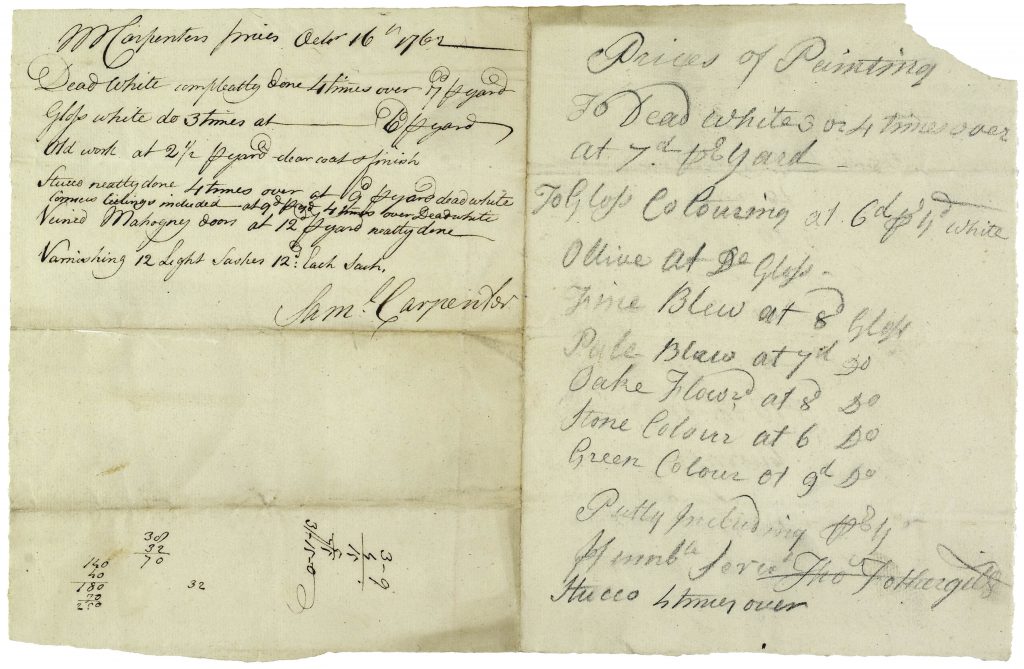 M Carpenters prices Octobr 16th 1762
Dead White compleatly done 4 times over 7d p yard
Gloss white do 3 times at 6d p yard
Old work at 2 1/2 p yard clear coat & finish
Stucco neatly done 4 times over at 9d p yard dead white
Cornices Ceilings included at 9d p yd 4 times over Dead white
Vained Mahogney doors at 12 p yard neatly done
Varnishing 12 Light Sashes 12d. Each Sash,
Saml. Carpenter
140
40
180
70
250
38
32
70
32
3-9
5
15
3-15-0
Prices of Painting
To Dead white 3 or 4 times over
at 7d. pr Yard
To Gloss Colouring at 6d pr yd white
Ollive at Do Gloss
Fine Blew at 8d Gloss
Pale Blew at 7d Do
Oake Flowrd at 8d Do
Stone Colour at 6 Do
Green Colour at 9d Do
Putty Including pr yr
Humble Servt Thos Fothergill
Stucco 4 times over